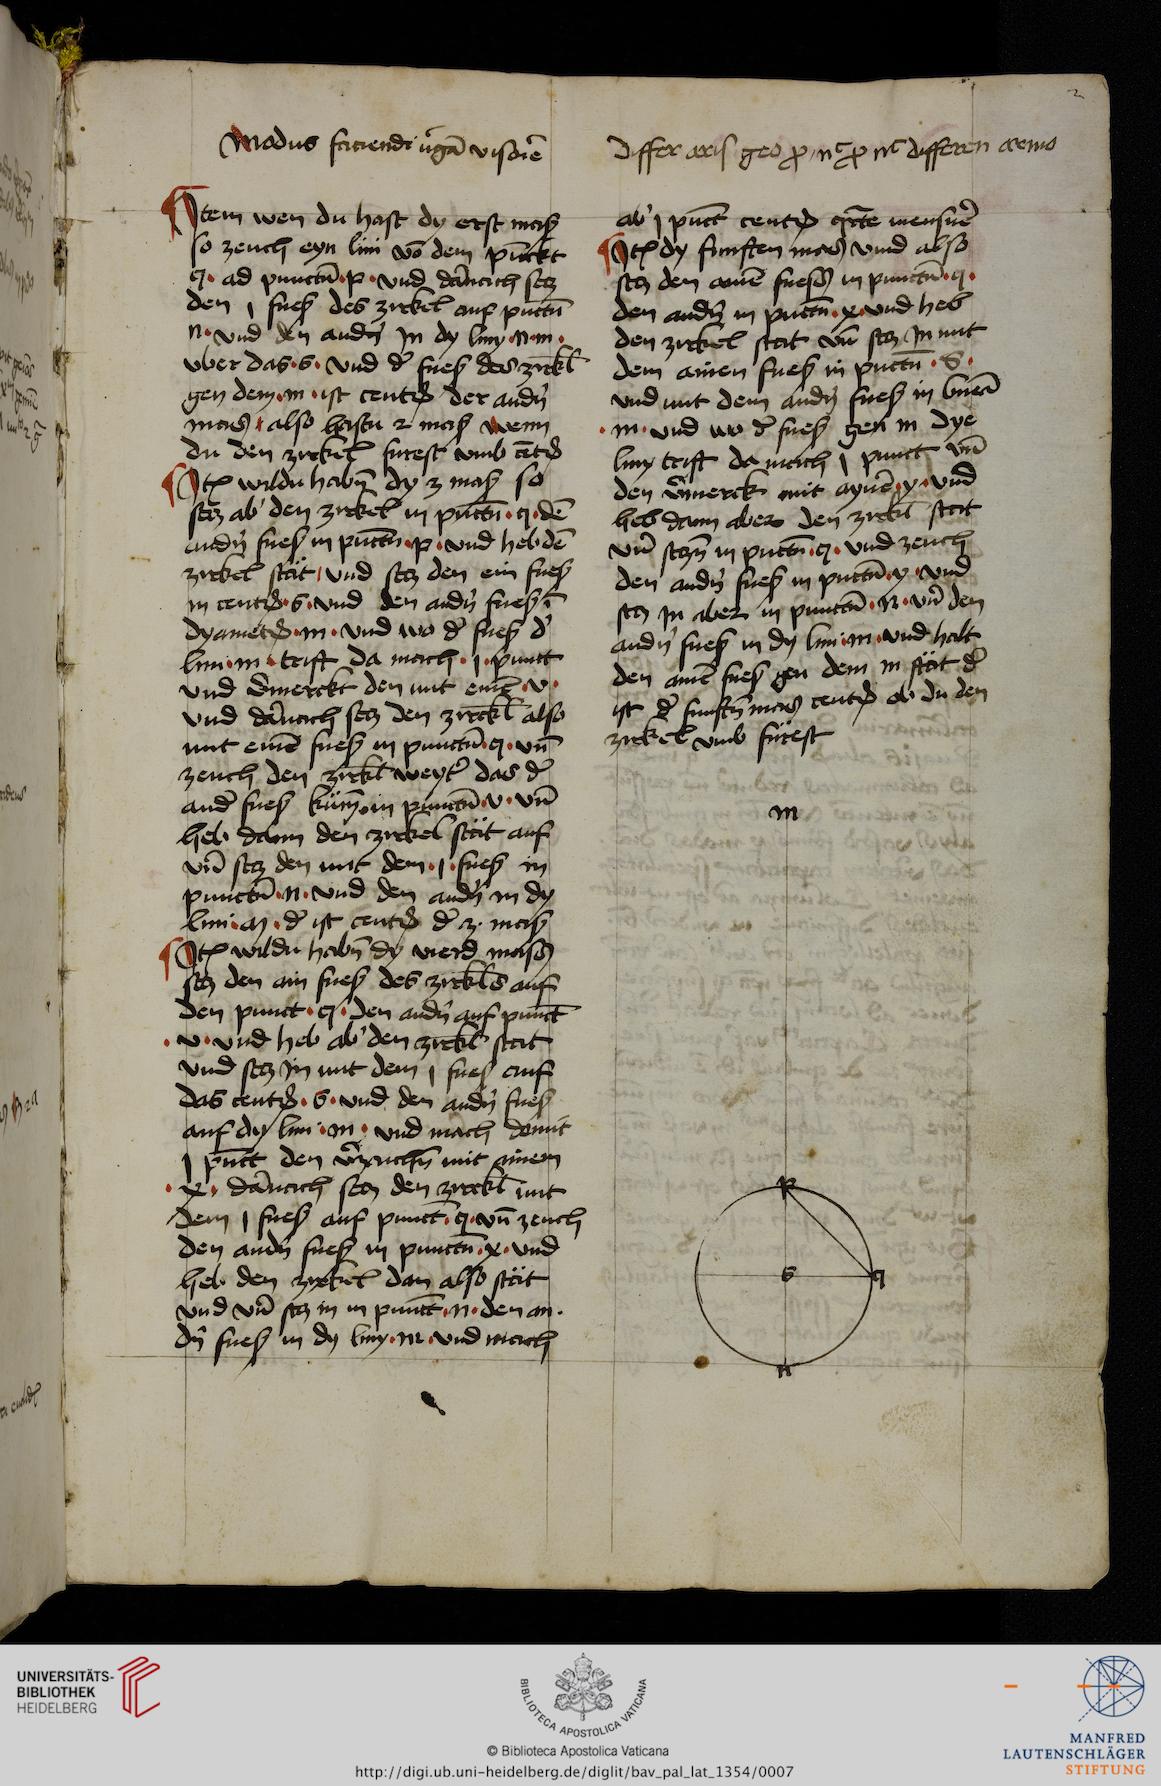 2
Modus faciendi v̓gā visoriē
Differ axis geo ꝓ nc̄ ꝓ nc̄ differen axmo
Item wen du hast dy erst mass
so zeuch eyn lini vō dem pūnckt
q · ad punctū · p · vnd dar̄nach secz
den j fuess des zirkel auf puctū
n · vnd den andn̄ In dy liny · n · m ·
vber das · s · vnd d̄ fuess des zirckl̄
gen dem · m · ist centrū der andn̄
mass also hastu 2 mass wenn
du den zirkel furest vmb cētrū
Itē wildu habn̄ dy 3 mass so
secz ab̓ den zirkel in puctū · q · dē
andn̄ fuess in puctū · p · vnd heb dē
zirkel stät vnd secz den ein fuess
in centrū · s · vnd den andn̄ fuess ī
dyametrū · m · vnd wo d̄ fuess d̓
lini · m · trift da mach · j · punct
vnd v̄merckt den mit einē · v ·
vnd dar̄nach secz den zirckl̄ also
mit einē fuess in punctū · q · vn̄
zeuch den zirkl̄ weyt̓ das d̄
and̓ fuess küm̄ in punctū · v · vn̄
heb dann den zirkel stät auf
vn̄ secz den mit dem · j · fuess in
punctū · n · vnd den andn̄ in dy
lini · m · d̄ ist centrū d̄ 3 · mass
Itē wildu habn̄ dy vierd mass
secz den ain fuess des zirkl̄s auf
den punct · q · den andn̄ auf punct̄
· v · vnd heb ab̓ den zirkl̄ stat
vnd secz in mit dem j fuess auf
das centrū · s · vnd den andn̄ fuess
auf dy lini · m · vnd mach domit
j pūct den v̄zaichn̄ mit ainem
· x · dar̄nach secz den zirckl̄ mit
dem j fuess auf punct̄ · q · vn̄ zeuch
den andn̄ fuess in punctū · x · vnd
heb den zirkel dan also stät
vnd vn̄ secz in in punct̄ · n · den an ·
dn̄ fuess in dy liny · m · vnd mach
ab̓ j pūct centrū q̄rte mensur̄e
Itē dy funften mass vnd also
secz den ainē fuess in punctū · q ·
den andn̄ in puctū · x · vnd heb
den zirkel stat vn̄ secz In mit
dem ainen fuess in puctū · s ·
vnd mit dem andn̄ fuess in lineā
· m · vnd wo d̄ fuess gen m dye
liny trift da mach j punct vn̄
den v̄merck mit aynē · y · vnd
heb dann aber den zirkl̄ stat
vn̄ seczn̄ in puctū · q · vnd zeuch
den andn̄ fuess in puctū · y · vnd
secz In aber in punctū · n · vn̄ den
andn̄ fuess in dy lini · m · vnd halt
den ainē fuess gen dem m stät d̄
ist d̄ funftn̄ mass centrū ob du den
zirkel vmb fürest
m
p
s
q
n
UNIVERSITÄTS-
BIBLIOTHEK
HEIDELBERG
BIBLIOTECA APOSTOLICA VATICANA
© Biblioteca Apostolica Vaticana
http://digi.ub.uni-heidelberg.de/diglit/bav_pal_lat_1354/0007
MANFRED
LAUTENSCHLÄGER
STIFTUNG